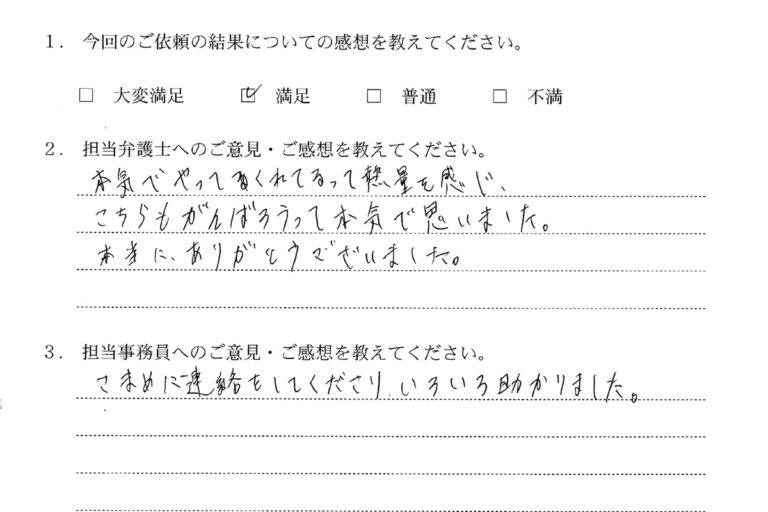 1. 今回のご依頼の結果についての感想を教えてください。
□ 大変満足 ☑ 満足 □ 普通 □ 不満
2. 担当弁護士へのご意見・ご感想を教えてください。
本気でやってくれてるって熱量を感じ、
こちらもがんばろうって本気で思いました。
本当に、ありがとうございました。
3. 担当事務員へのご意見・ご感想を教えてください。
こまめに連絡をしてくださり、いろいろ助かりました。